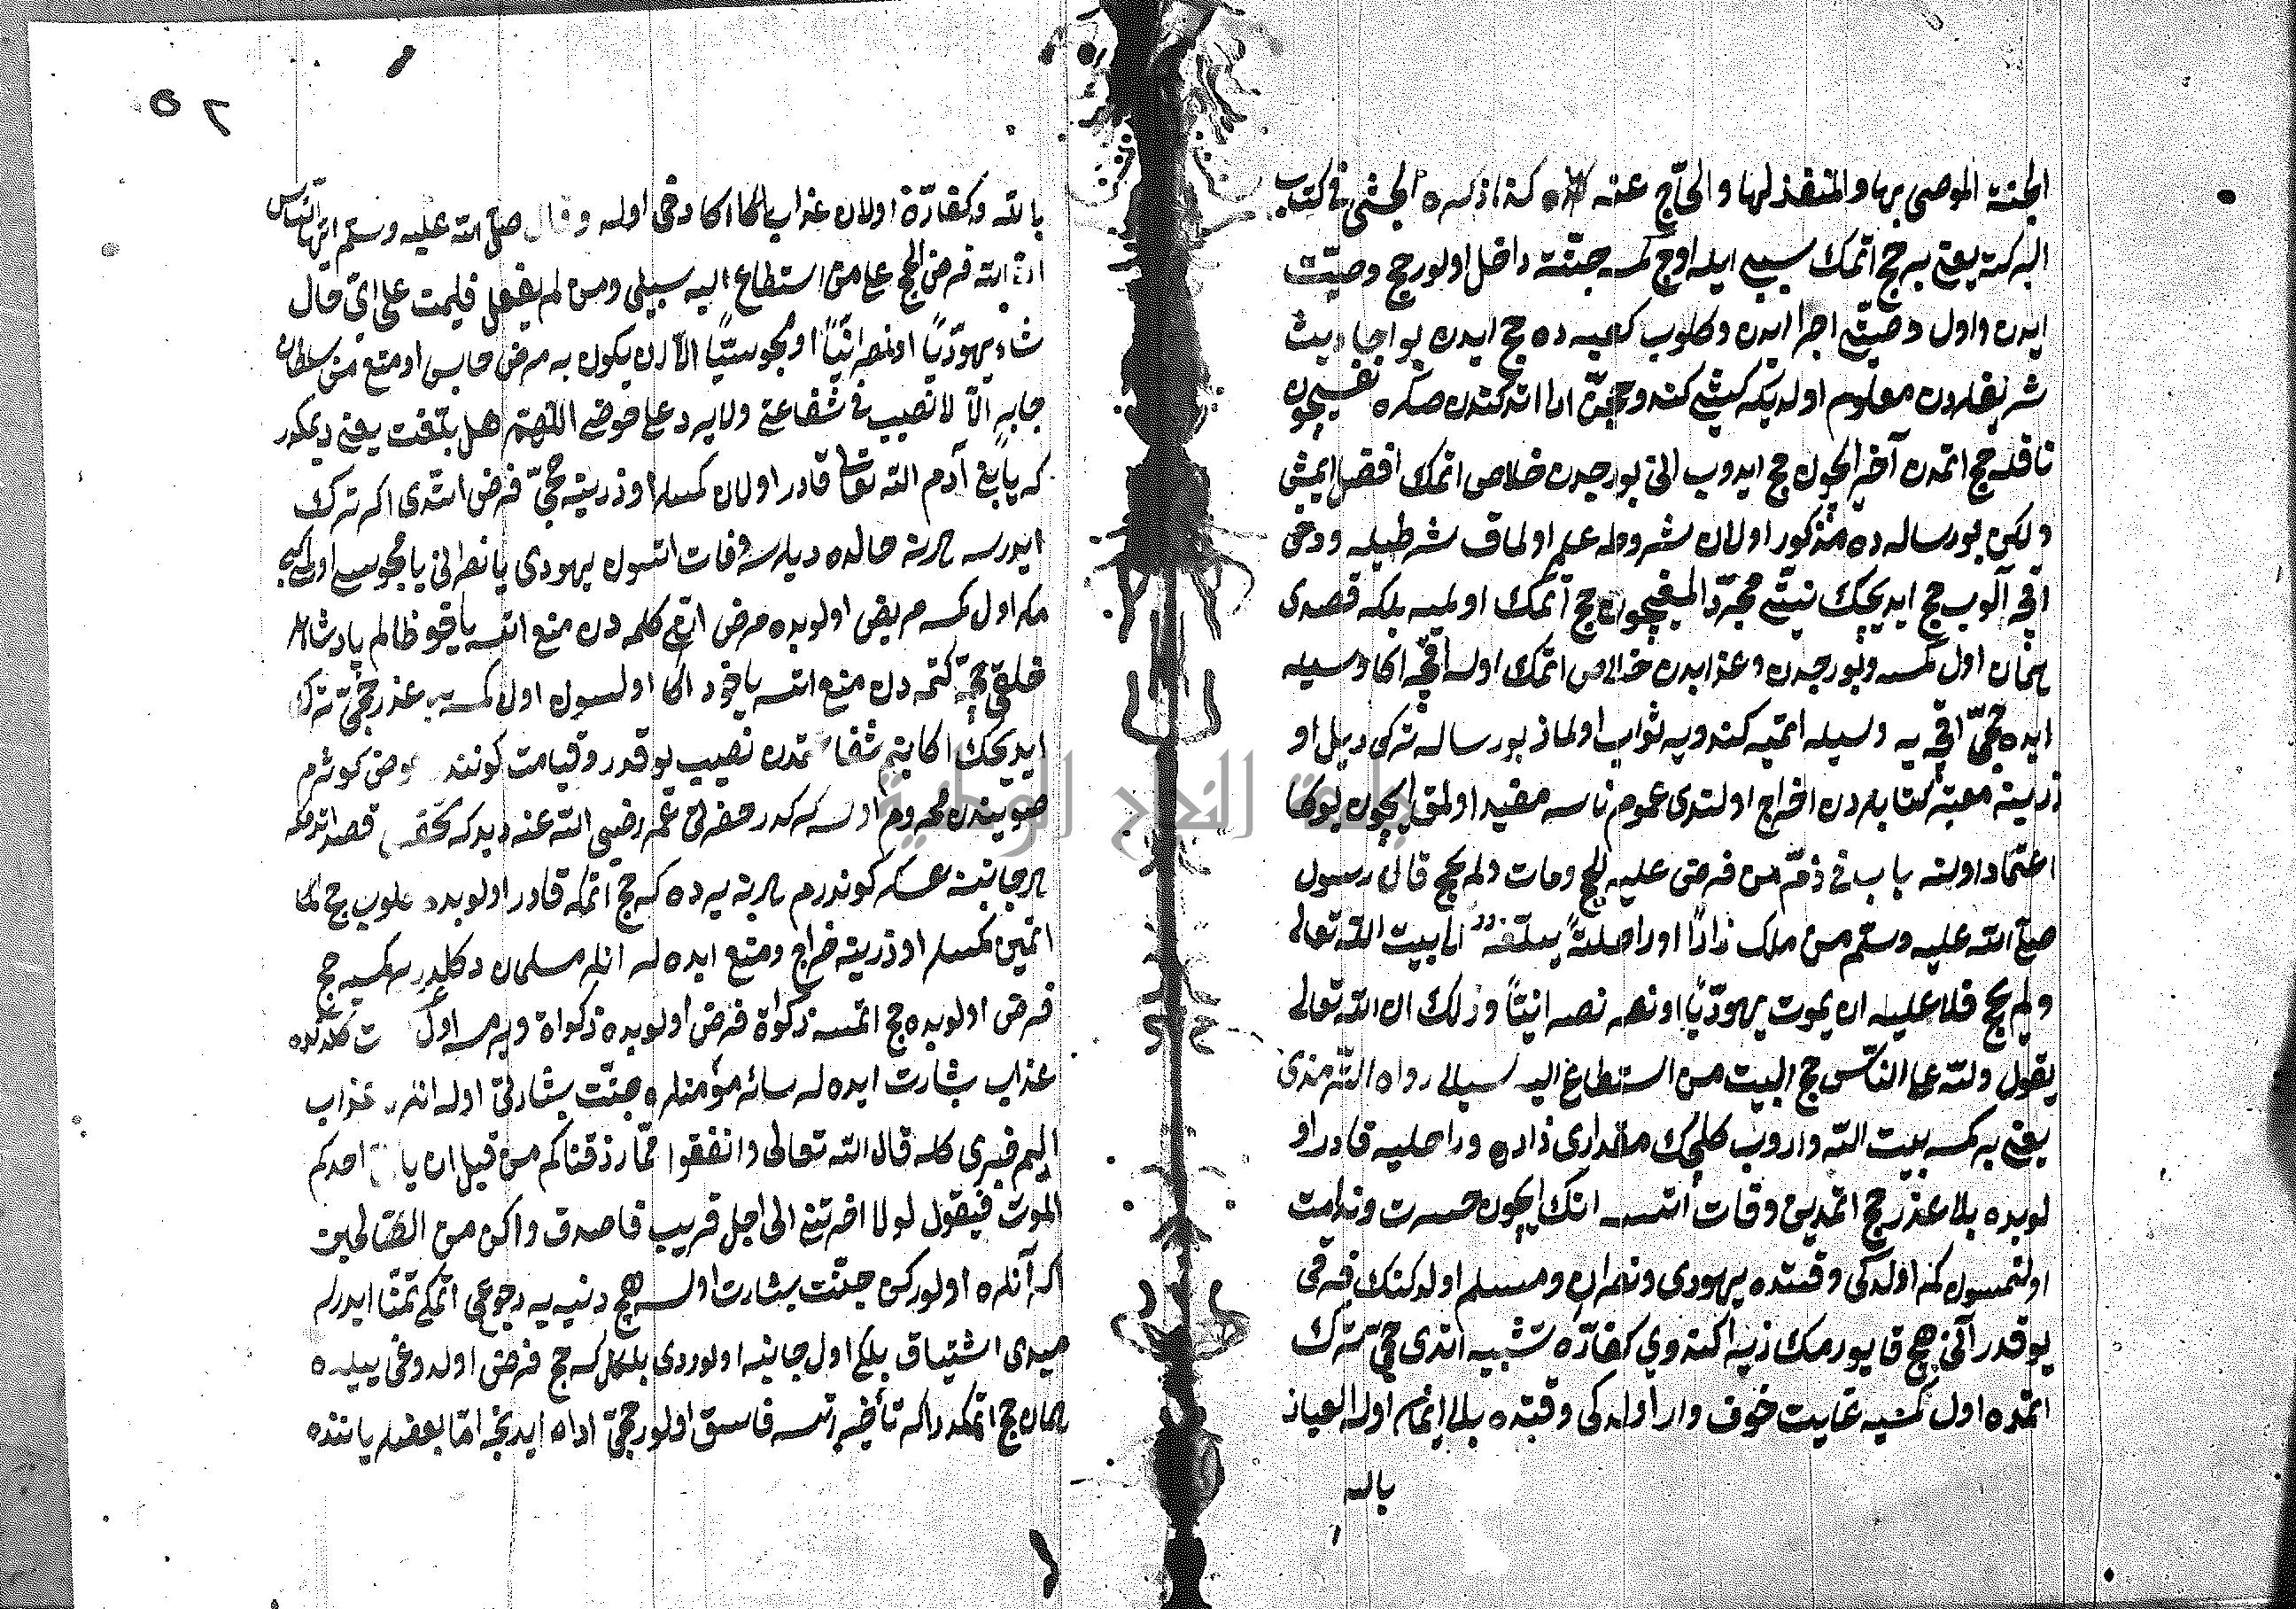 الجنة الموصى بها والمنفذ لها والحاج عنه كذا ذكره الجشى فى كتاب
البركة يعنى بر حج اتمك سببى ايله اوچ كمسه جنته داخل اولور حج وصيت
ايدن واول وصيتى اجرا ايدن وكلوب كعبيه ده حج ايدن بو احاديث
شريفلردن معلوم اولديكه كيشى كندو حجن ادا اتدكدن صكره نفسيچون
نافله حج اتمدن آخر ايچون حج ايدوب انى بورجدن خلاص اتمك افضل ايمش
ولكن بو رساله ده مذكور اولان شروطه علم اولماق شرطيله ودخى
اقچه آلوب حج ايديجك نيتى مجرد المغيچون حج اتمك اولميه بلكه قصدى
همان اول كمسه وبورجدن وعذابدن خلاص اتمك اوله اقچه اكا وسيله
ايده حجى اقچه يه وسيله اتميه كندويه ثواب اولماز بو رساله تركى ديل او
زرينه معتبر كتابلردن اخراج اولندى عموم ناسه مفيد اولمق ايچون بوكا
اعتماد اولنه باب فى ذم من فرض عليه الحج ومات ولم يحج قال رسول
صلى الله عليه وسلم من ملك زادا او راحلة يبلغه الى بيت الله تعالى
ولم يحج فلا عليه ان يموت يهوديا او نصرانيا وذلك ان الله تعالى
يقول ولله على الناس حج البيت من استطاع اليه سبيلا رواه الترمذى
يعنى بر كمسه بيت الله واروب كلجك مقدارى زاده وراحليه قادر او
لوبده بلا عذر حج اتمدين وفات اتسه انك ايچون حسرت وندامت
اولنمسون كه اولدكى وقتده يهودى ونصرانى ومسلم اولدكنك فرقى
يوقدر آنى هچ قيورمك زيرا كندوي كفاره تشبيه اتدى حجى ترك
اتمده اول كسيه غايت خوف وار اولدكى وقتده بلا ايمان اوله العياذ
بالله
٥٢
بالله وكفارة اولان عذاب اكا دخى اوله وقال صلى الله عليه وسلم ايها الناس
ان الله فرض الحج على من استطاع اليه سبيلا ومن لم يفعل فليمت على اى حال
شاء يهوديا او نصرانيا او مجوسيا الا ان يكون به مرض حابس او منع من سلطان
جابر الا لا نصيب فى شفاعتى ولا يرد على حوضى اللهم هل بلغت يعنى ديمكدر
كه يا بنى آدم الله تعالى قادر اولان كمسلر اوزرينه حجى فرض اتدى اكر ترك
ايدرسه هرنه حالده ديلرسه وفات اتسون يهودى يا نصرانى يا مجوسى اولسون
مكر اول كمسه مريض اولوبده مرض آنى كلمه دن منع اتسه ياخو ظالم پادشاهلر
خلقى حجه كتمه دن منع اتسه ياخود اكا اولسون اول كمسه بى عذر حجى ترك
ايديجك اكا بنم شفاعتمدن نصيب يوقدر وقيامت كوننده حوض كوثرم
صويندن محروم اولسه كركدر حضرت عمر رضى الله عنه ديدكه تحقيق قصد اتدمكه
هر جانبنه عسكر كوندرم هرنه يرده كه حج اتمكه قادر اولوبده كلوب حج
اتمين كمسلر اوزرينه خراج ومنع ايده لر انلر مسلمان دكلدر سكميه حج
فرض اولوبده حج اتمسه زكواة فرض اولوبده زكواة ويرمسه اول كلدكده
عذاب بشارت ايده لر سائر مؤمنلره جنت بشارتى اوله انلر عذاب
اليم خبرى كله قال الله تعالى وانفقوا مما رزقناكم من قبل ان ياتى احدكم
الموت فيقول لولا اخرتنى الى اجل قريب فاصدق واكن من الصالحين
اكر آنلره اولوركن جنت بشارت اولسه هچ دنييه رجوعى اتمكى تمنا ايدرلر
ميدى اشتياق بلكه اول جانبه اولوردى بلكل كه حج فرض اولدوغى ييلده
همان حج اتمكدر اكر تأخير اتسه فاسق اولور حجى اداه ايدنجه اما بعضلر ياننده